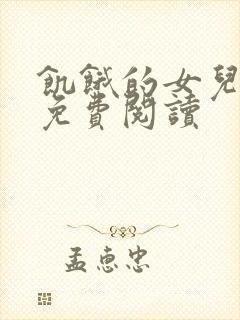 飢餓的女兒
免費閱讀
孟惠忠